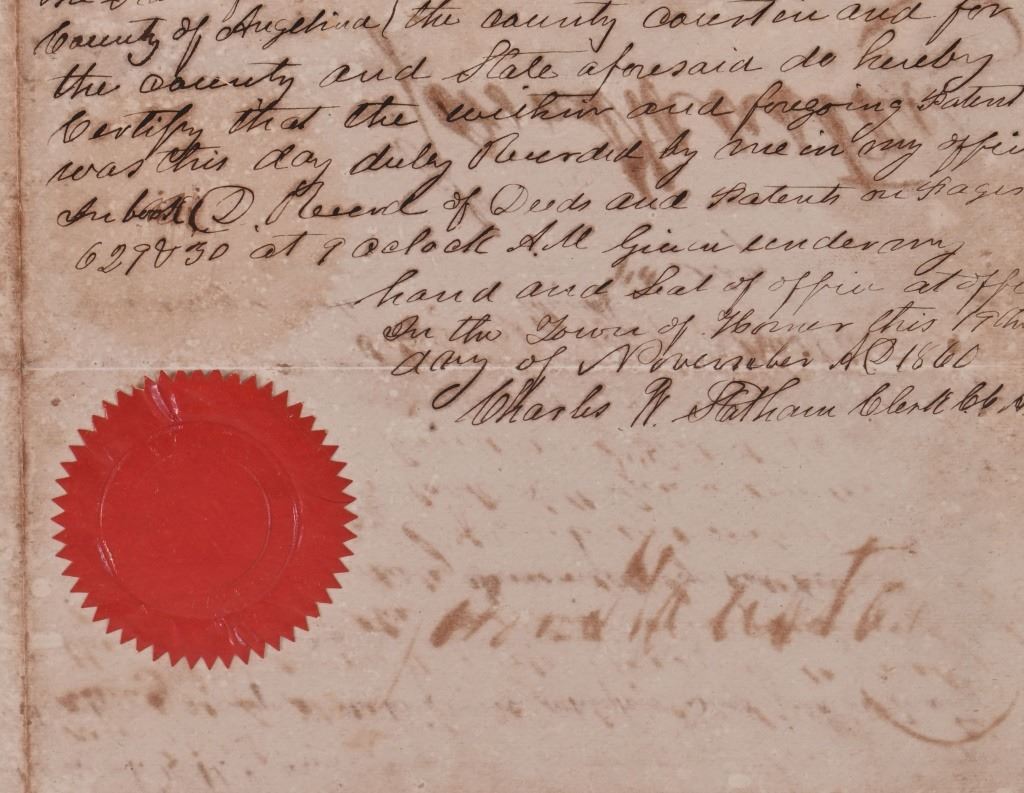 County of Angelina ( the county court in and for
the county and State aforesaid do hereby
Certify that the within and foregoing Patent
was this day duly Recorded by me in my offic
In book D. Record of Deeds and Patents on Pages
629 & 30 at 9 oclock A.M Given under my
hand and Seal of office at offi
In the Town of Homer this 19th
day of November AD 1860
Charles W. Statham Clerk CC A